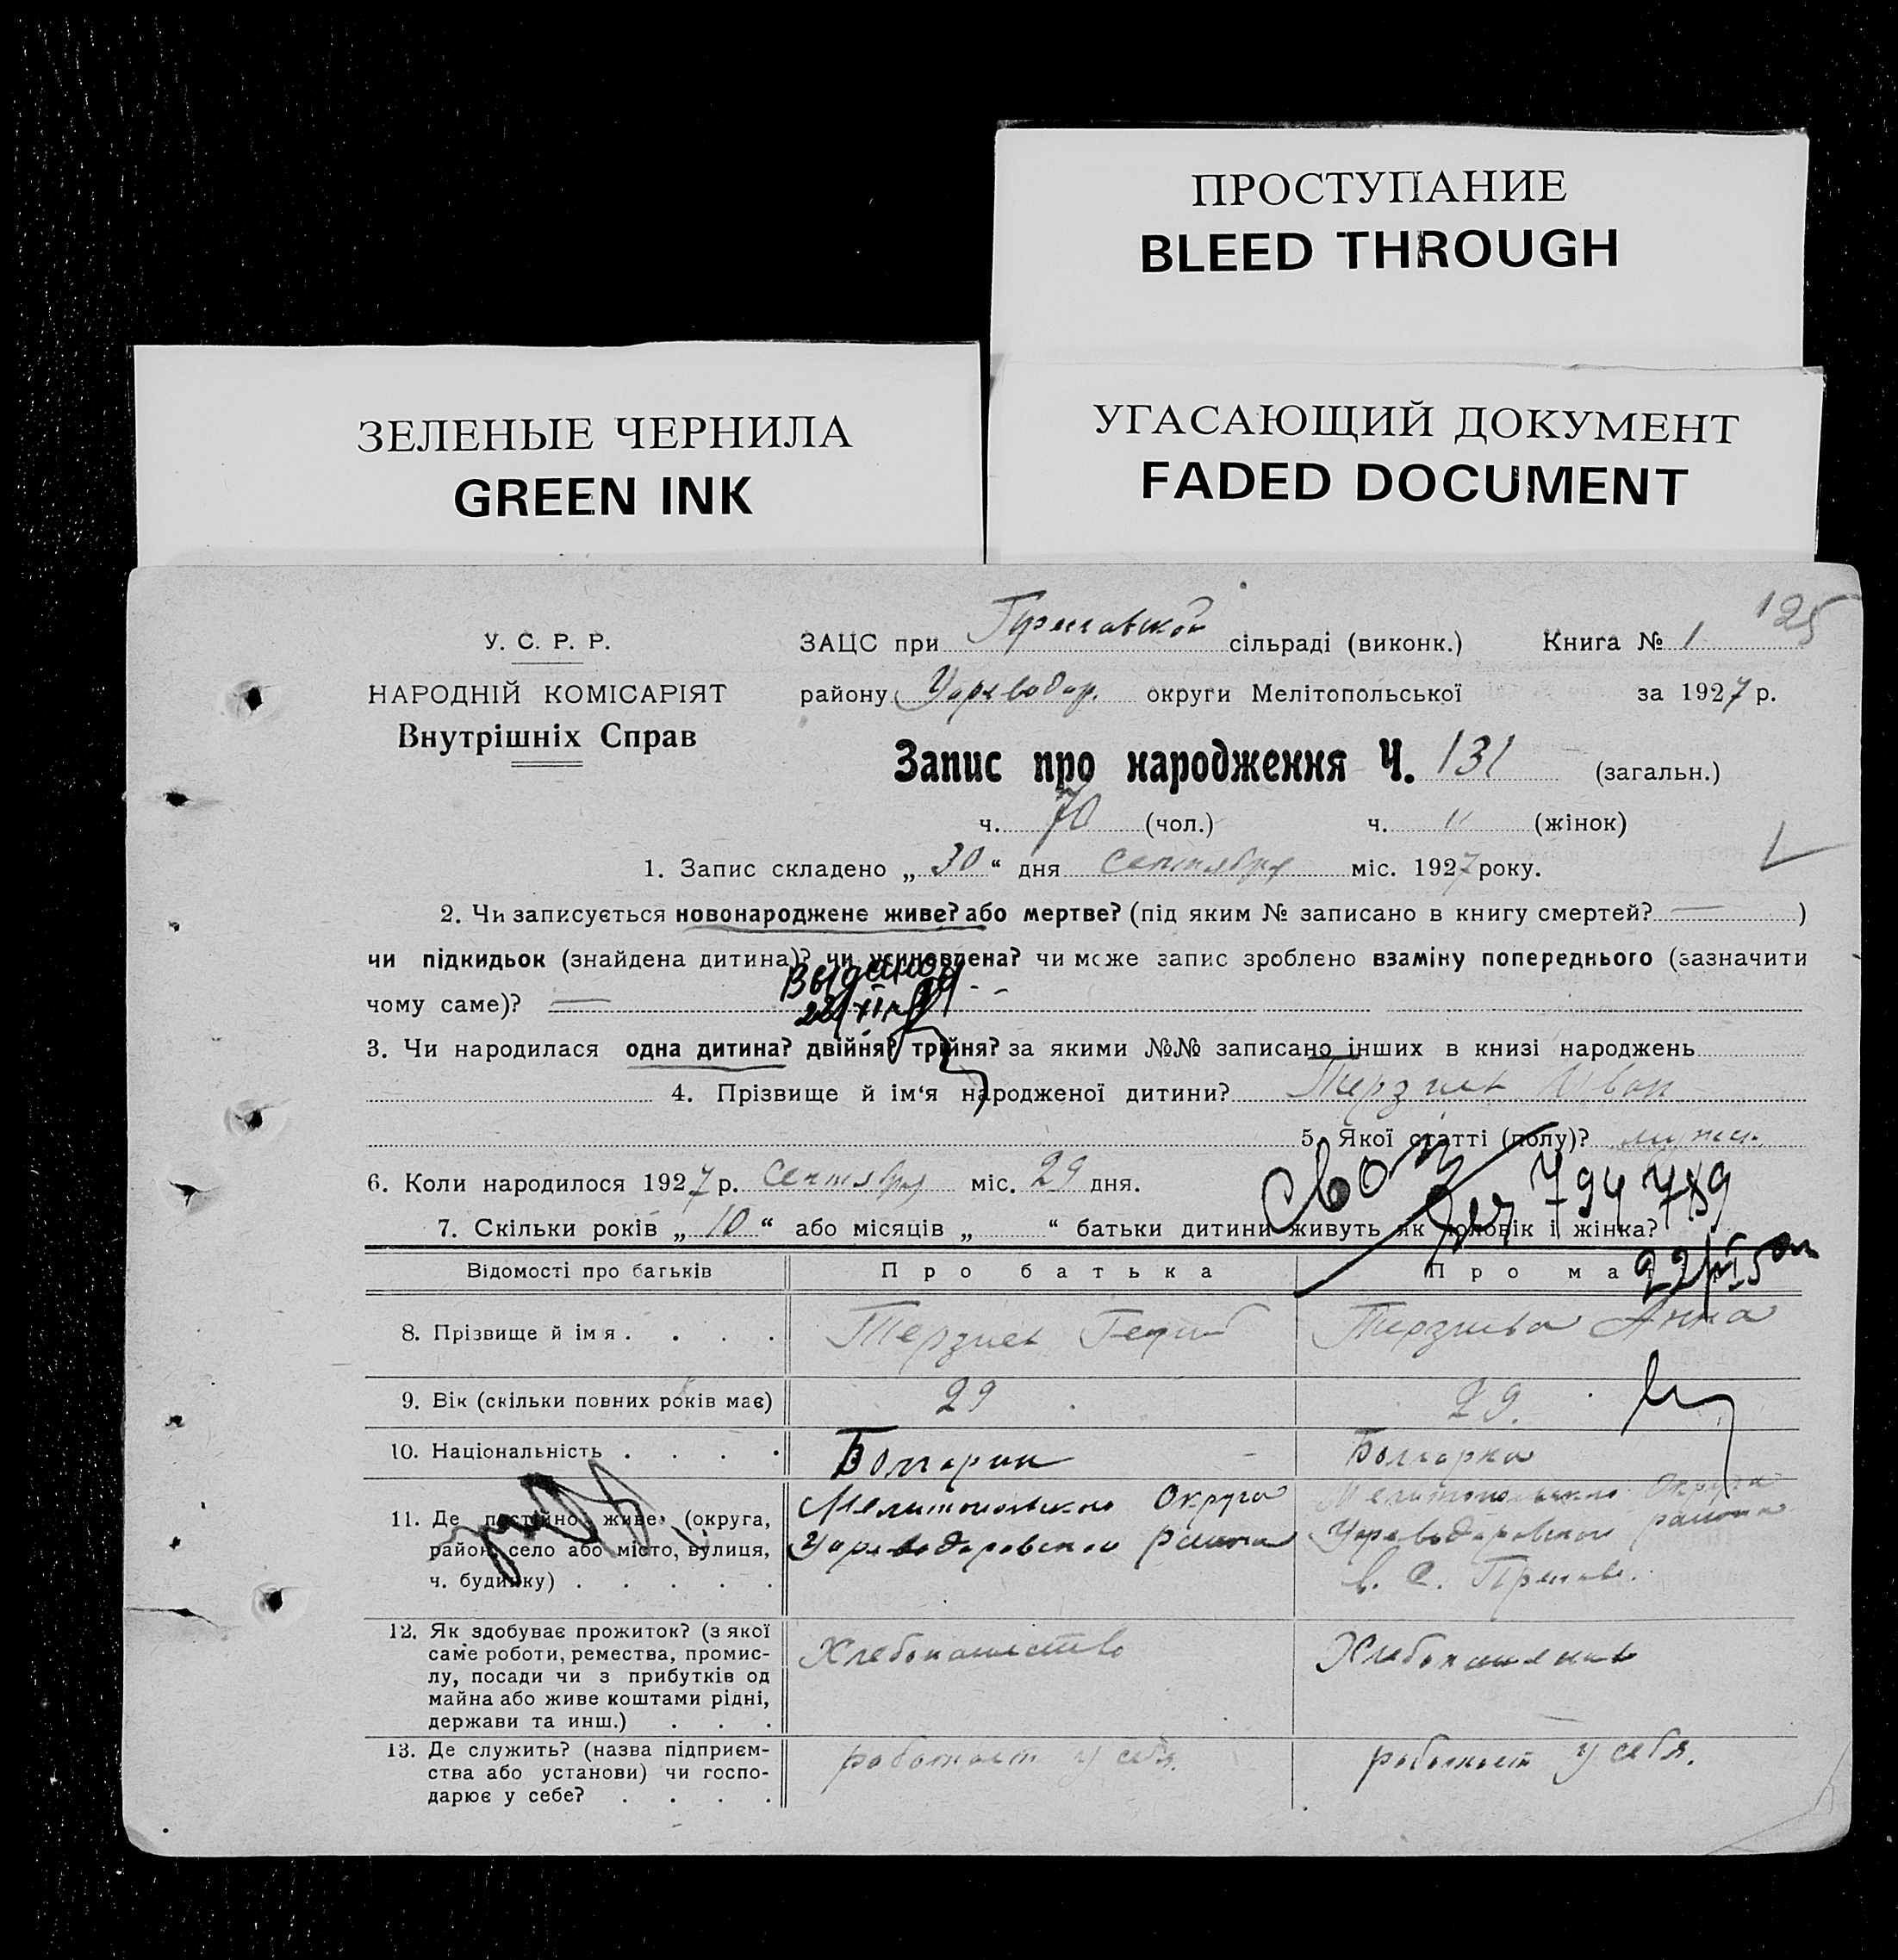 ПРОСТУПАНИЕ
BLEED THROUGH
ЗЕЛЕНЫЕ ЧЕРНИЛА
GREEN INK
УГАСАЮЩИЙ ДОКУМЕНТ
FADED DOCUMENT
125
У. С. Р. Р.
НАРОДНІЙ КОМІСАРІЯТ
Внутрішніх Справ
ЗАЦС при сільраді (виконк.) Книга № 1
району Цареводар. округи Мелітопольської за 1927 р.
Запис про народження Ч. 131 (загальн.)
ч. 70 (чол.) ч. " (жінок)
1. Запис складено „ 30 “ дня сентября міс. 1927 року.
2. Чи записується новонароджене живе? або мертве? (під яким № записано в книгу смертей? — )
чи підкидьок (знайдена дитина)? чи усиновлена? чи може запис зроблено взаміну попереднього (зазначити
чому саме)? —
3. Чи народилася одна дитина? двійня? трійня? за якими №№ записано інших в книзі народжень
4. Прізвище й ім‘я народженої дитини? Терзиев Иван
5. Якої статті (полу)? мужск.
6. Коли народилося 1927 р. Сентября міс. 29 дня.
7. Скільки років „ 10 “ або місяців „ “ батьки дитини живуть як чоловік і жінка?
794789
Відомості про батьків Про батька Про ма
8. Прізвище й ім'я . . . . Терзиев Терзиева Анна
9. Вік (скільки повних років має) 29 29.
10. Національність . . . . Болгарин Болгарка
11. Де постійно живе (округа,
район, село або місто, вулиця,
ч. будинку) . . . . .
Мелитопольского Округа
Цареводаровского района
Мелитопольского Округа
Цареводаровского района
в. с.
12. Як здобуває прожиток? (з якої
саме роботи, ремества, промис-
лу, посади чи з прибутків од
майна або живе коштами рідні,
держави та инш.) . . .
Хлебопашество
13. Де служить? (назва підприєм-
ства або установи) чи госпо-
дарює у себе? . . . .
работает у себя.
работает у себя.